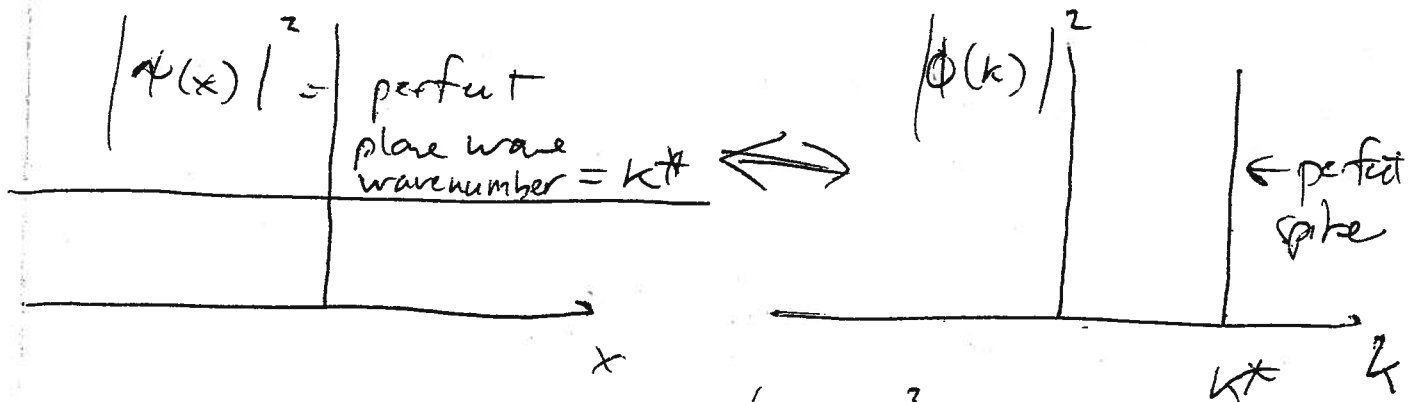 |ψ(x)|² = perfect
plane wave
wavenumber = k*
x
|ϕ(k)|²
← perfect
spike
k*
k